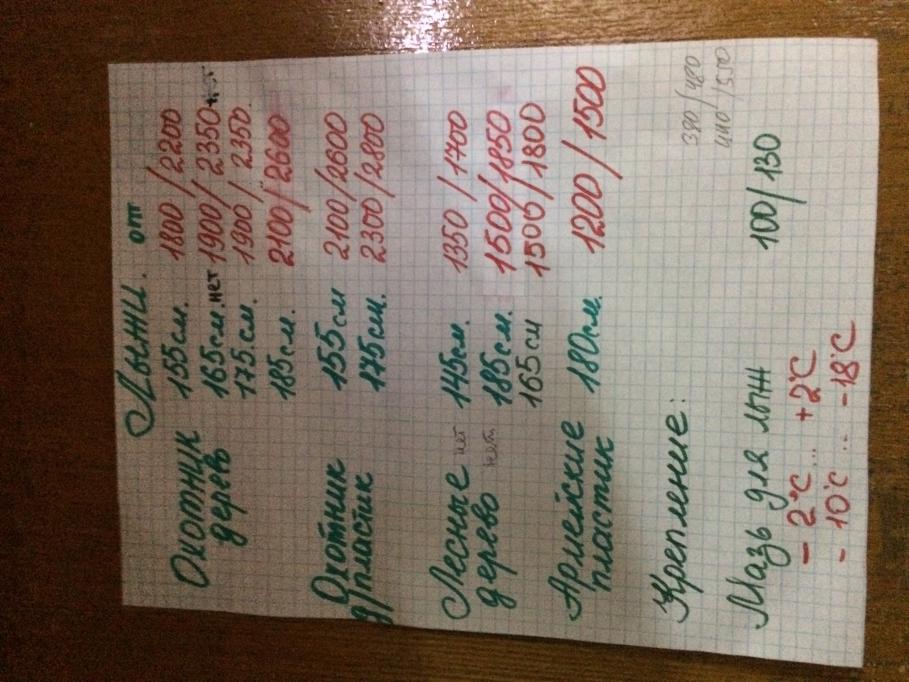 Лыжи. от
Охотник 155см. 1800/2200
дерево 165см. нет 1900/2350 нет
175см. 1900/2350.
185см. 2100/2600
Охотник 155см 2100/2600
д/пластик 175см. 2300/2800
Лесные нет 145см. 1350/1700
дерево нет 185см. 1500/1850
165см 1500/1800
Армейские 180см. 1200/1500
пластик
Крепление: 380/480
440/550
Мазь для лыж 100/130
- 2°C... +2°C
- 10°C .. -18°C